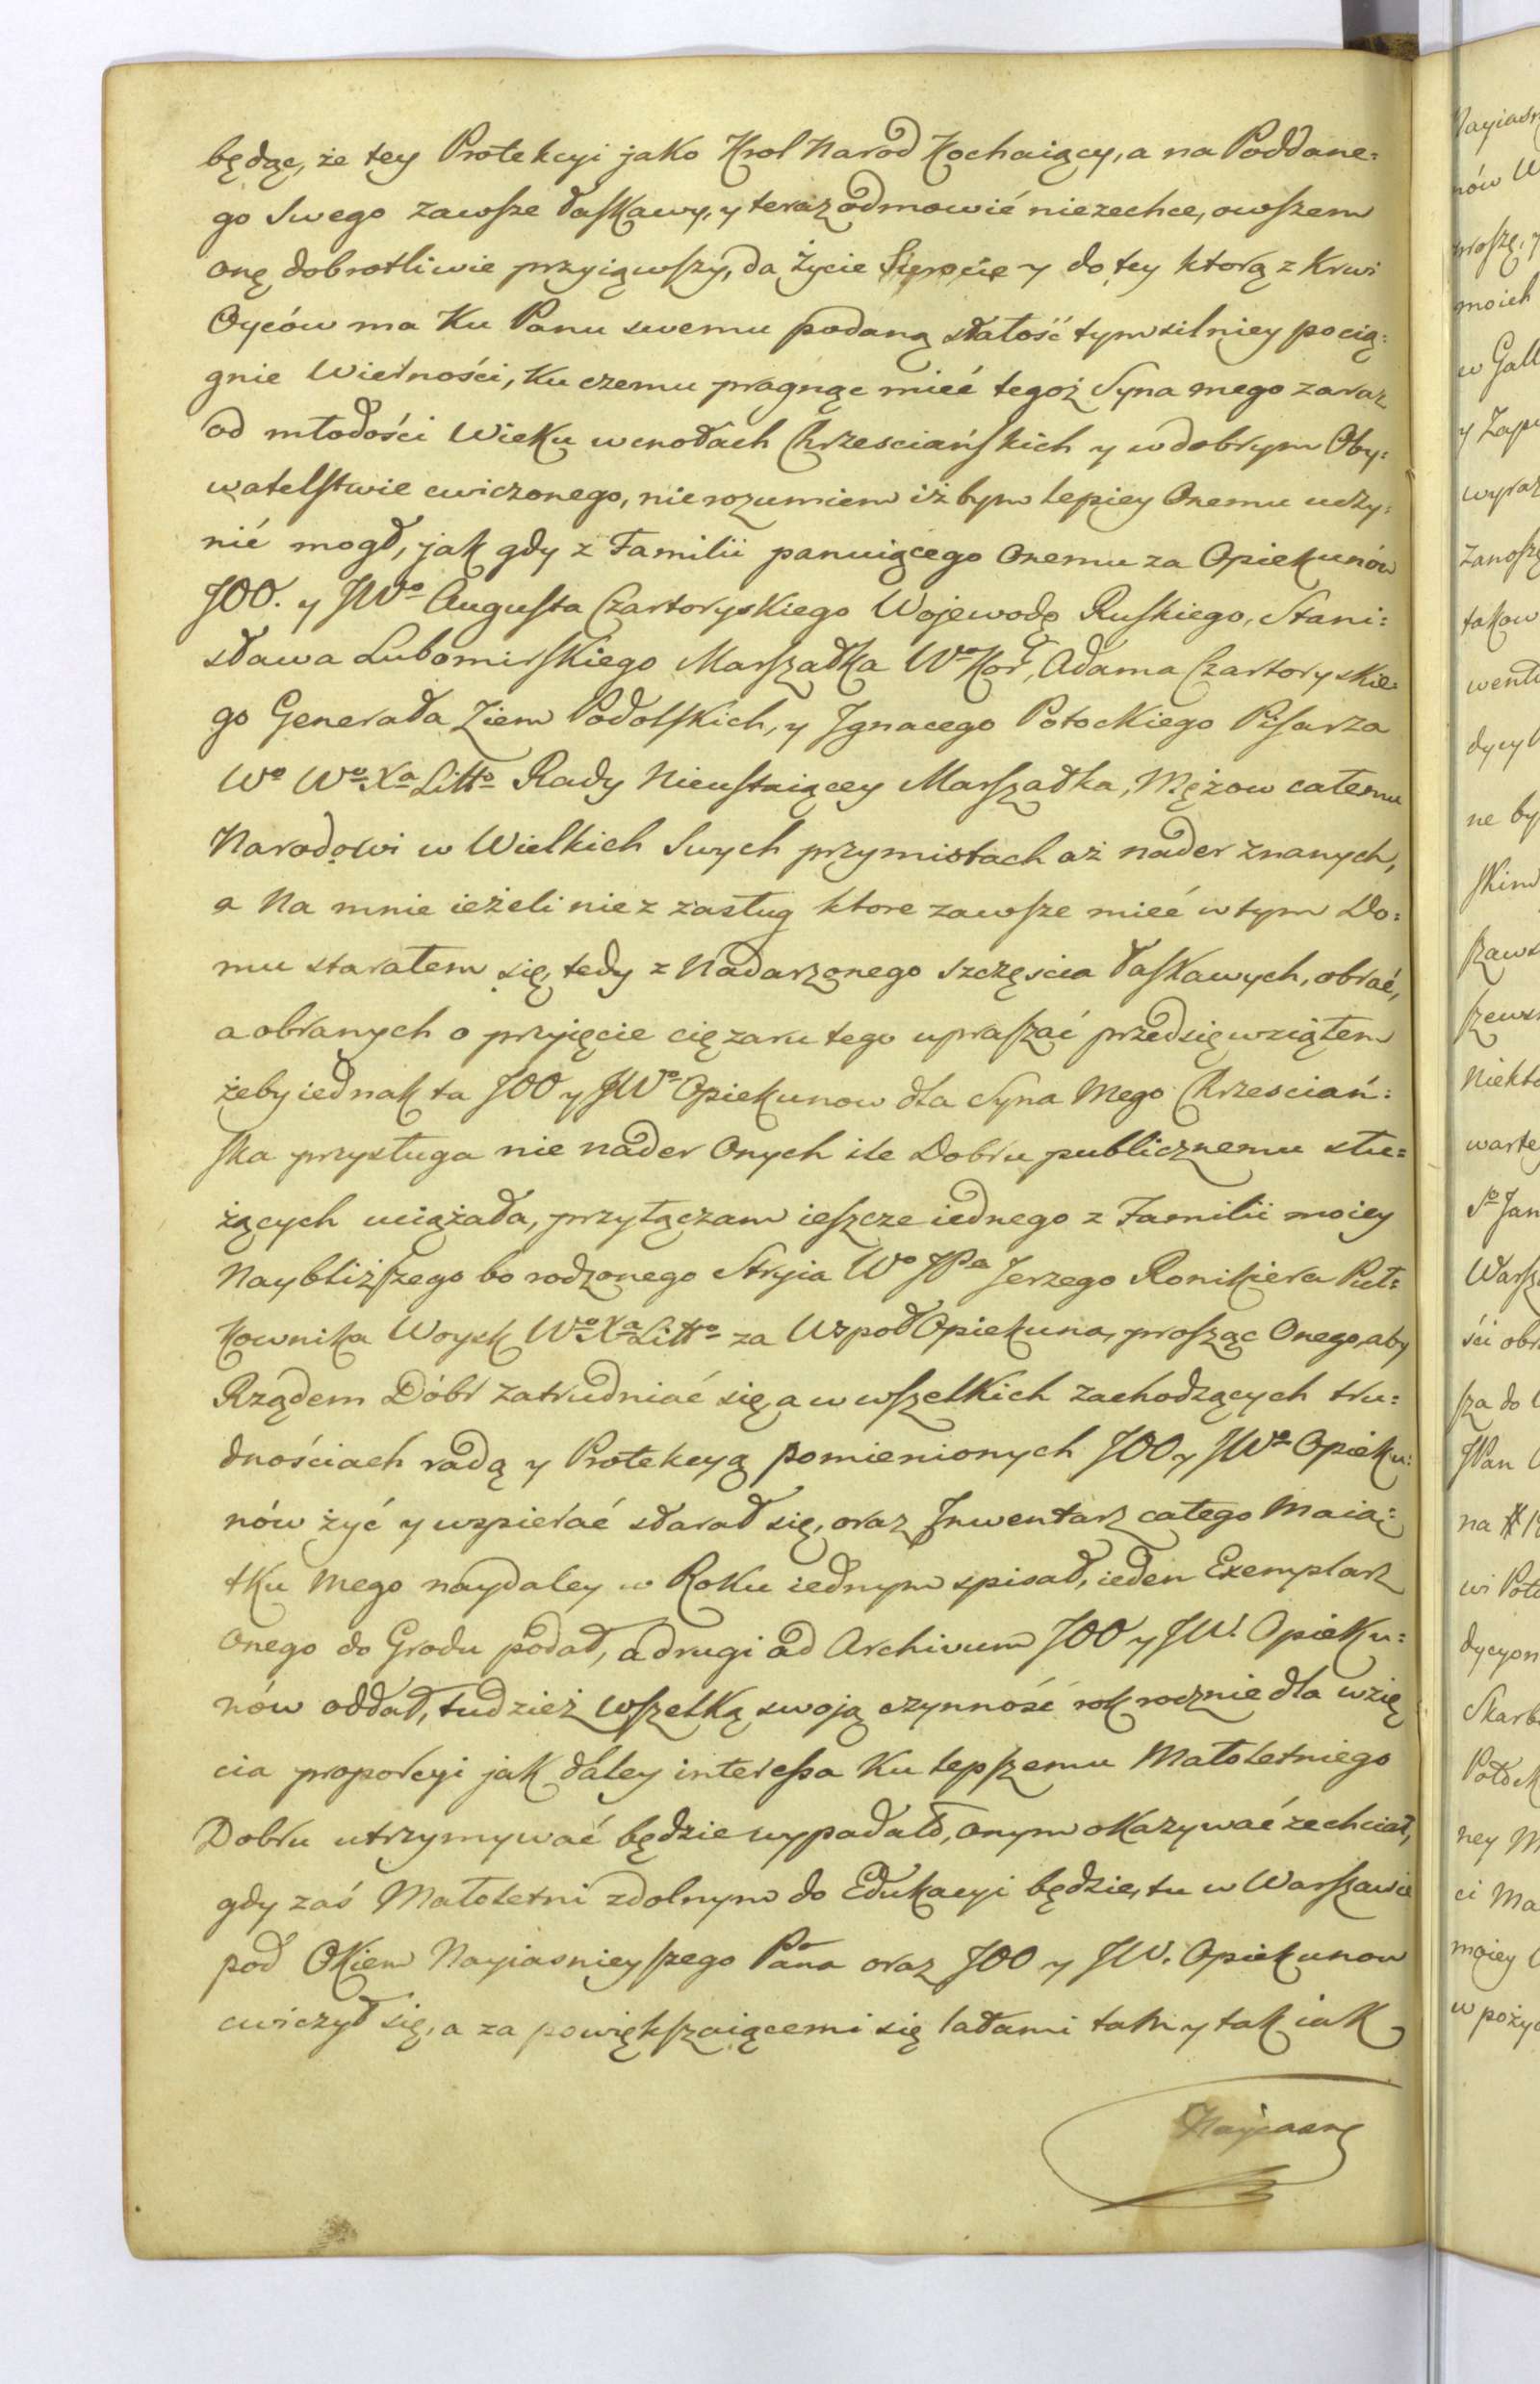 będąc, że tey Protekcyi jako Krol Narod Kochaiący, a na Poddane:
go Swego zawsze łaskawy, y teraz odmowić niezechce, owszem
onę dobrotliwie przyiąwszy, da życie Sierocie y do tey ktorą z Krwi
Oyców ma Ku Panu swemu podaną stałość tym silniey pocią:
gnie Wierności, Ku czemu pragnąc mieć tegoż Syna mego zaraz
od młodości Wieku w cnotach Chrzesciańskich y w dobrym Oby:
watelstwie cwiczonego, nierozumiem iż bym lepiey Onemu uczy:
nić mogł, jak gdy z Familii panuiącego Onemu za Opiekunów
JOO. y JWo Augusta Czartoryskiego Wojewodę Ruskiego, Stani:
sława Lubomirskiego Marszałka Wo Kor, Adama Czartoryskie:
go Generała Ziem Podolskich, y Ignacego Potockiego Pisarza
Wo Wo Xa Litto Rady Nieustaiącey Marszałka, Mężow całemu
Narodowi w Wielkich Swych przymiotach aż nader znanych,
a Na mnie ieżeli nie z zasług ktore zawsze mieć w tym Do:
mu starałem się, tedy z Nadarzonego szczęscia łaskawych, obrać,
a obranych o przyięcie ciężaru tego upraszać przedsięwziąłem
żeby iednak ta JOO y JWo Opiekunow dla Syna Mego Chrzesciań:
ska przysługa nie nader Onych ile Dobru publicznemu słu:
żących uciążała, przyłączam ieszcze iednego z Familii moiey
Naybliższego bo rodzonego Stryia Wo JPa Jerzego Ronikiera Puł:
kownika Woysk Wo Xa Litto za Wspoł Opiekuna, prosząc Onego, aby
Rządem Dóbr zatrudniać się, a w wszelkich zachodzących tru:
dnościach radą y Protekcyą pomienionych JOO y JWo Opieku:
nów żyć y wspierać starał się, oraz Inwentarz całego Maią:
tku Mego naydaley w Roku iednym spisał, ieden Exemplarz
Onego do Grodu podał, a drugi ad Archivum JOO y JW. Opieku:
nów oddał, tudzież wszelką swoją czynność rok rocznie dla wzię
cia proporcyi jak daley interessa Ku lepszemu Małoletniego
Dobru utrzymywać będzie wypadało, onym okazywać zechciał,
gdy zaś Małoletni zdolnym do Edukacyi będzie, tu w Warszawie
pod Okiem Nayiasnieyszego Pana oraz JOO y JW. Opiekunow
cwiczył się, a za powiększaiącemi się latami tam y tak iak
Nayiasny